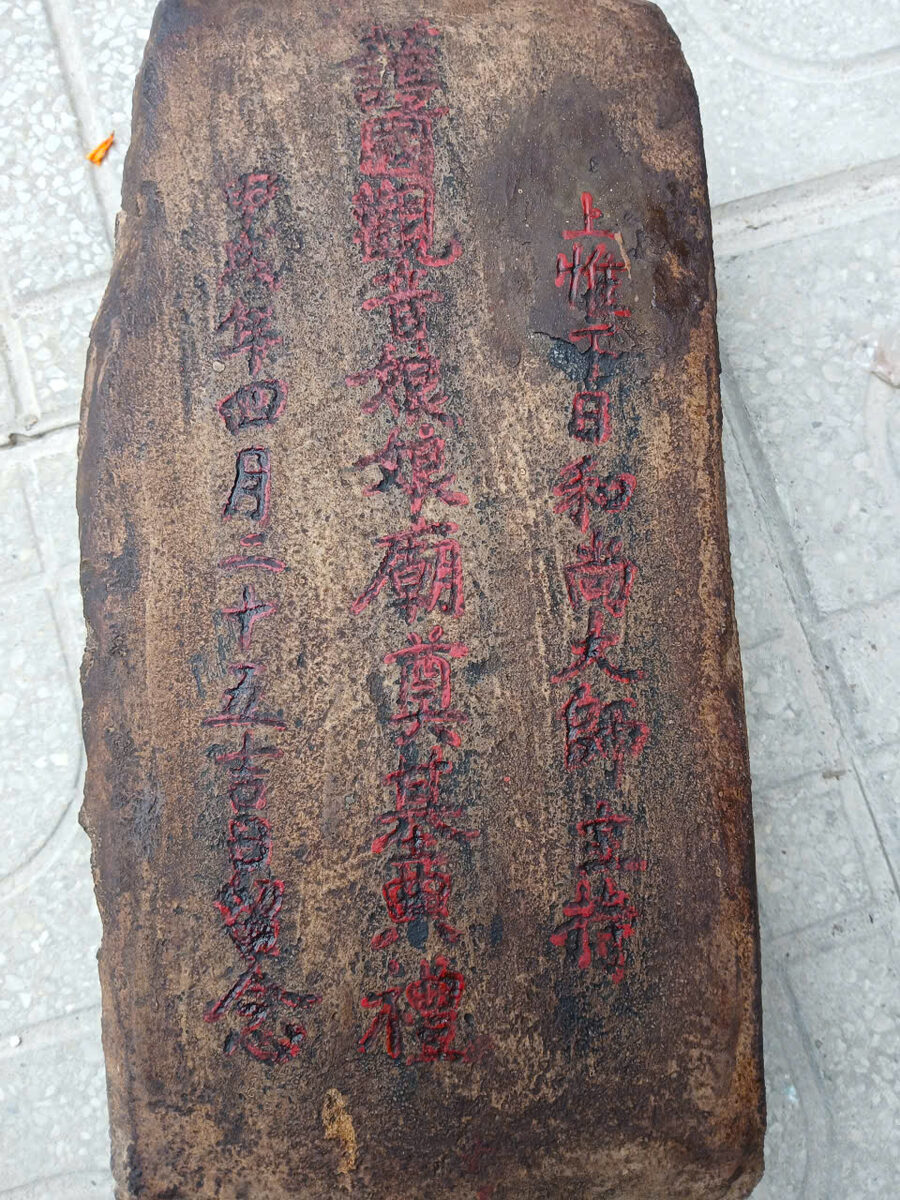 上惟元日和尚大師立符
護國觀音娘娘廟奠基典禮
甲戌年四月二十五吉日留念